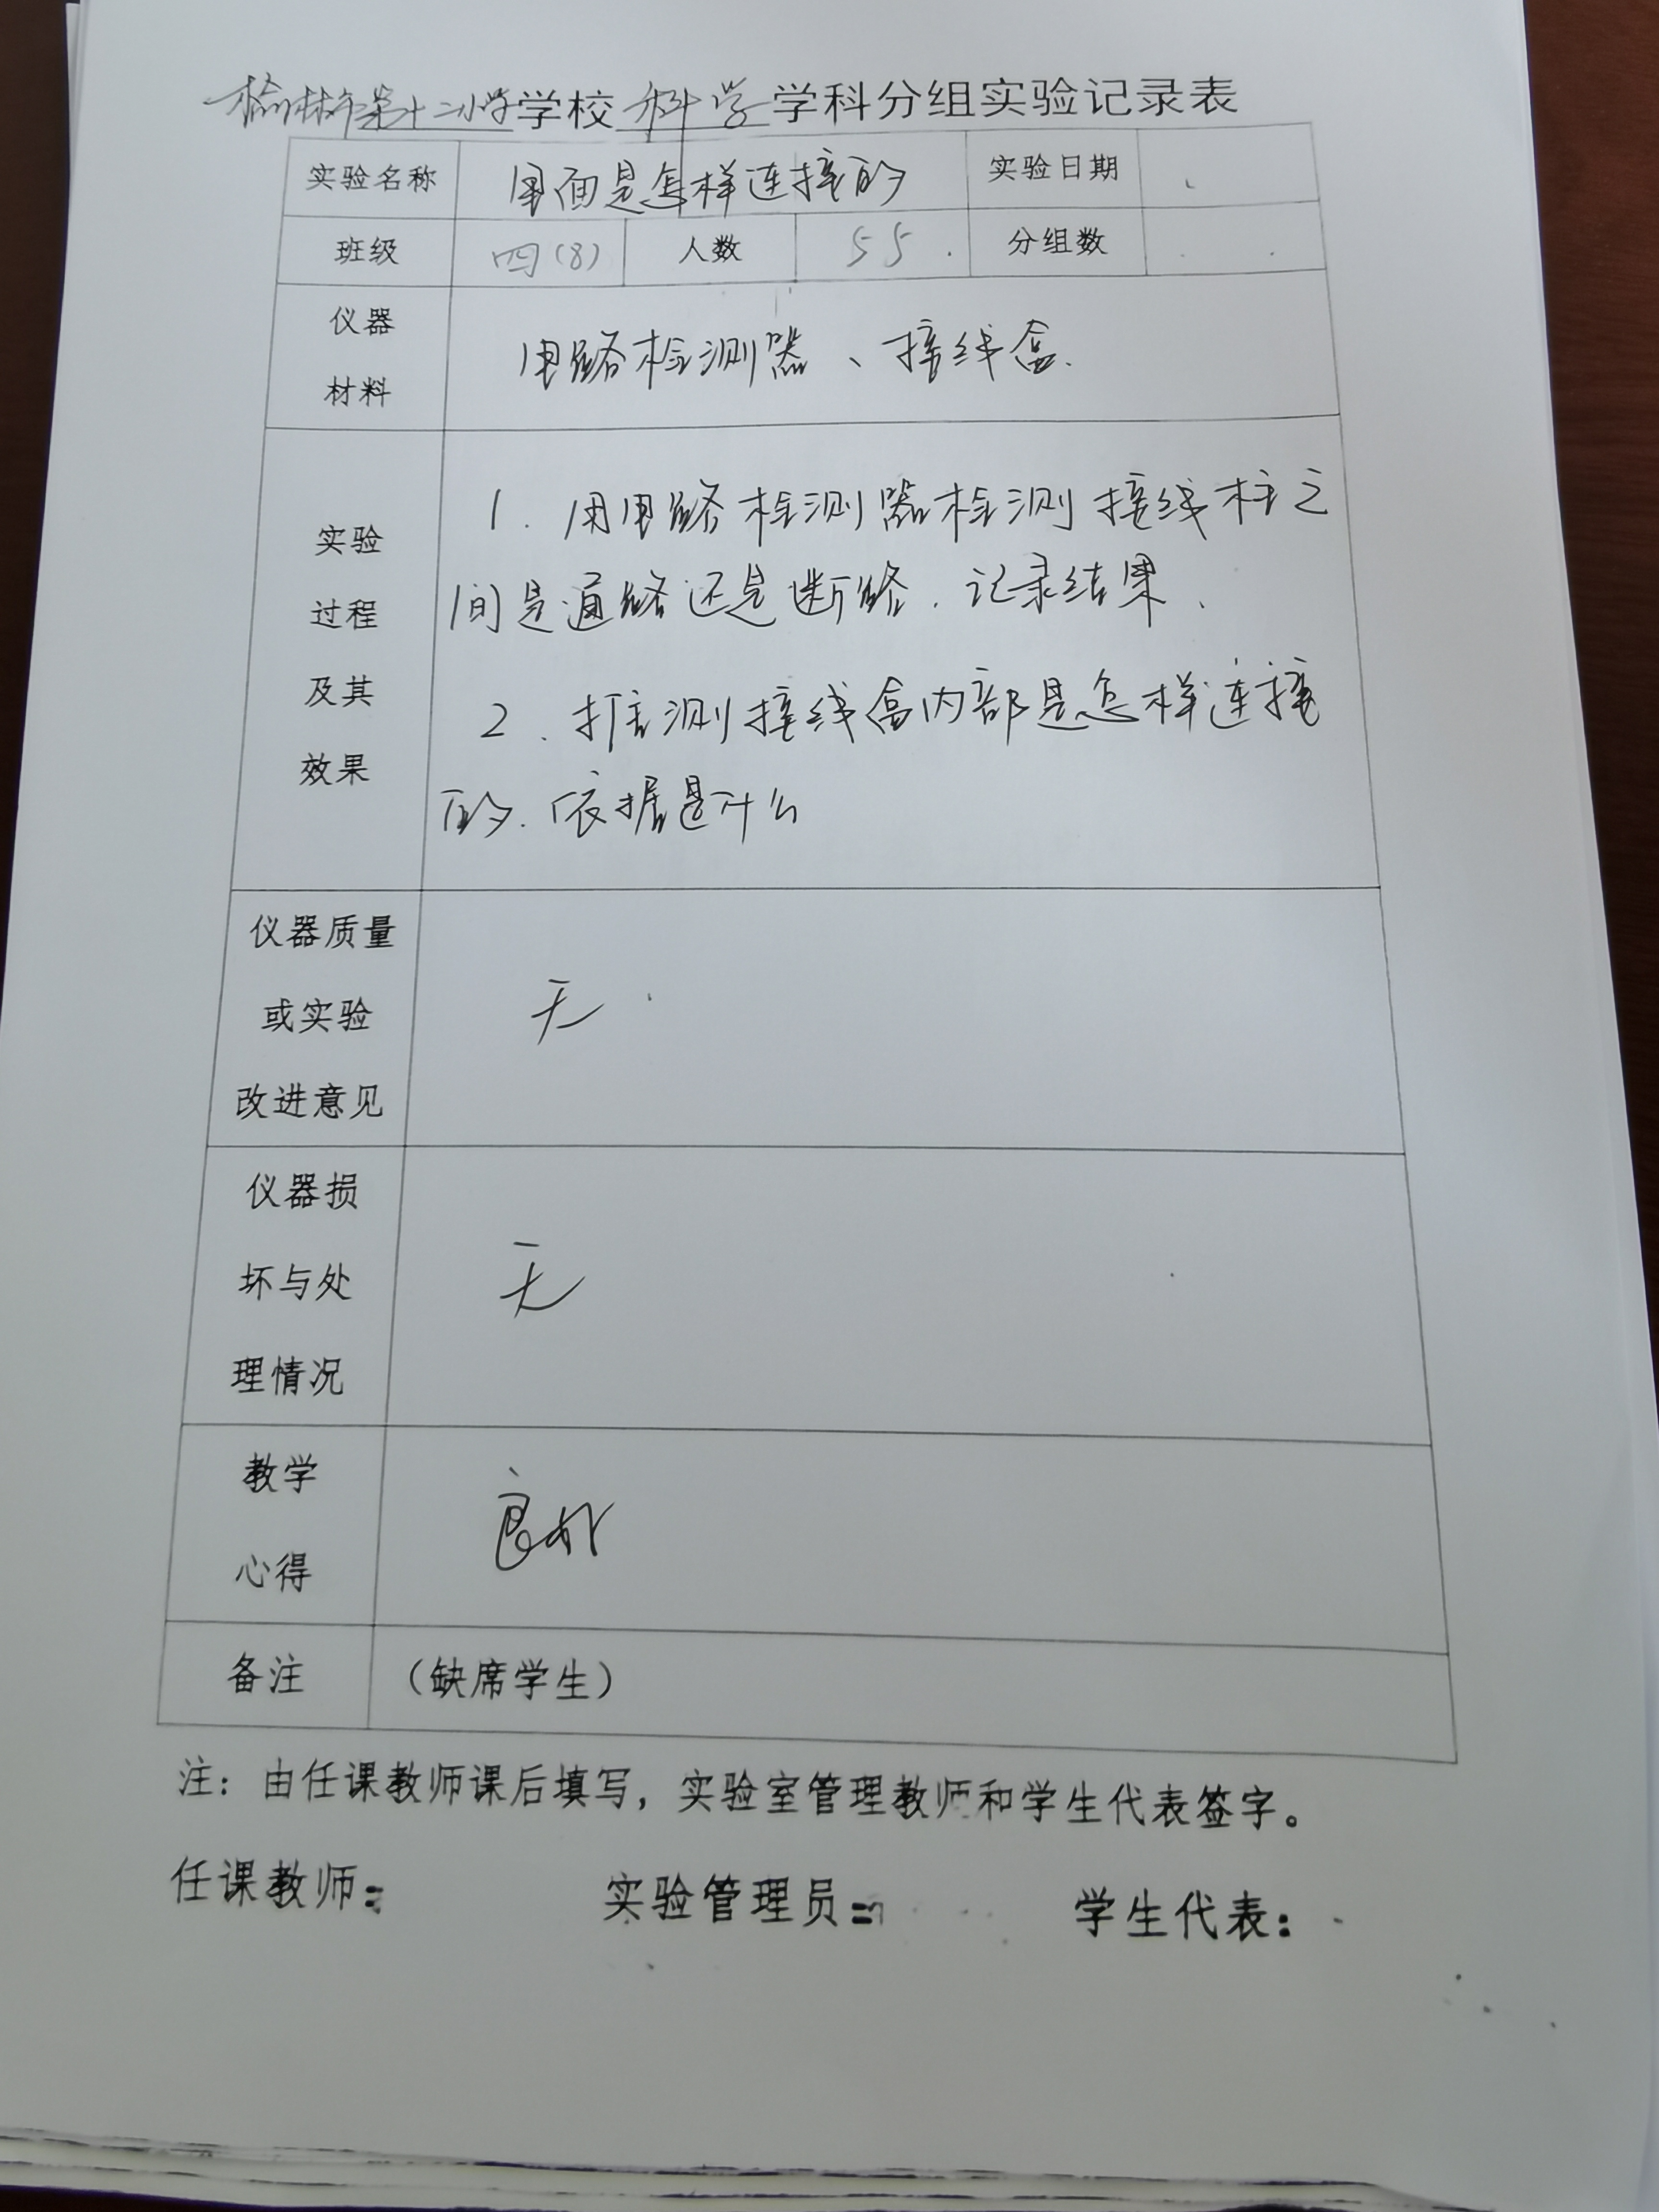 榆林市第十二小学学校科学学科分组实验记录表
实验名称 里面是怎样连接的 实验日期
班级 四(8) 人数 55 分组数
仪器
材料
电路检测器、接线盒.
实验
过程
及其
效果
1. 用电路检测器检测接线柱之
间是通路还是断路.记录结果、
2. 推测接线盒内部是怎样连接
的.依据是什么
仪器质量
或实验
改进意见
无
仪器损
坏与处
理情况
无
教学
心得
良好
备注 (缺席学生)
注：由任课教师课后填写，实验室管理教师和学生代表签字。
任课教师： 实验管理员： 学生代表：